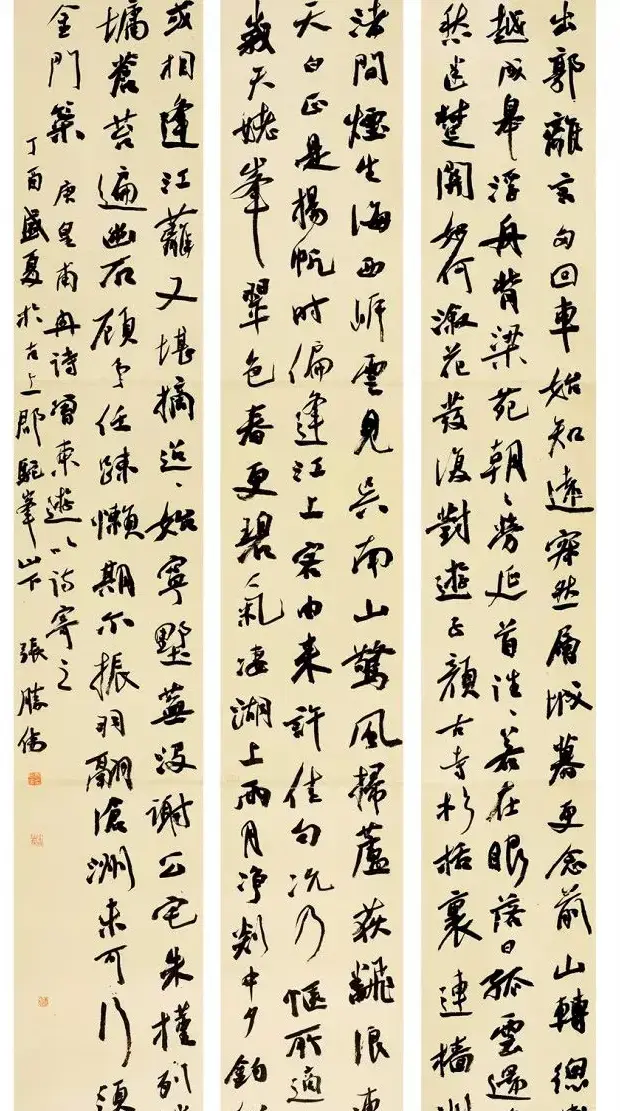 出郭離言多回車始知遠寂然層城暮更念前山轉總
越成皋浮舟背梁苑朝〻勞延首往〻若在眼落日孤雲還
愁迷楚關如何溆花發復對遊子顏古寺杉栝裏連檣洲
渚間煙生海西岸雲見吳南山驚風掃蘆荻翻浪連
天白正是揚帆時偏逢江上客由來許佳句況乃愜所適
峩天姥峯翠色春更碧氣淒湖上雨月淨剡中夕釣
或相逢江蘺又堪摘迢〻始寧墅蕪沒謝公宅朱槿列
墉蒼苔遍幽石顧予任疎懶期尔振羽翮滄洲未可行須
金門策 唐皇甫冉詩曾東遊以詩寄之
丁酉盛夏於古上郡駝峯山下 張勝偉